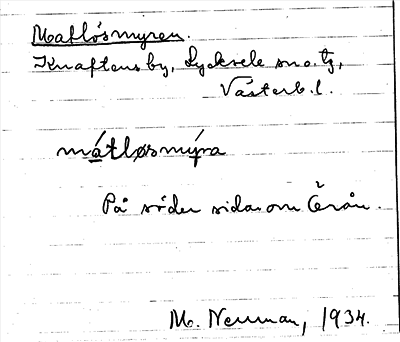 Matlösmyren.
Knaftens by, Lycksele sn o. tg,
Västerb. l.
mátløsmýra
På söder sidan om Örån.
M. Nenman, 1934.